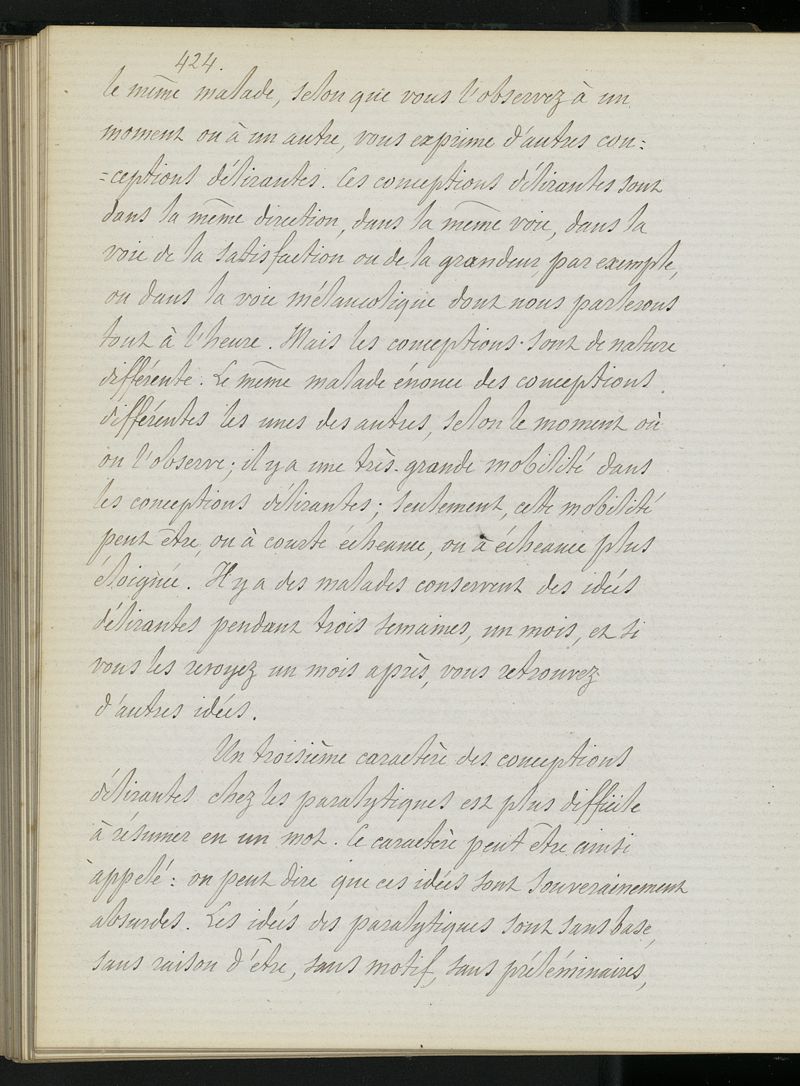 424.
le même malade, selon que vous l'observez à un
moment ou à un autre, vous exprime d'autres con=
=ceptions délirantes. Ces conceptions délirantes sont
dans la même direction, dans la même voie, dans la
voie de la satisfaction ou de la grandeur, par exemple,
ou dans la voie mélancolique dont nous parlerons
tout à l'heure. Mais les conceptions sont de nature
différente. Le même malade énonce des conceptions
différentes les unes des autres, selon le moment où
on l'observe; il y a une très-grande mobilité dans
les conceptions délirantes; seulement, cette mobilité
peut être, ou à courte échéance, ou à échéance plus
éloignée. Il y a des malades conservent des idées
délirantes pendant trois semaines, un mois, et si
vous les revoyez un mois après, vous retrouvez
d'autres idées.
Un troisième caractère des conceptions
délirantes chez les paralytiques est plus difficile
à résumer en un mot. Ce caractère peut être ainsi
appelé: on peut dire que ces idées sont souverainement
absurdes. Les idées des paralytiques sont sans base,
sans raison d'être, sans motif, sans préléminaires,